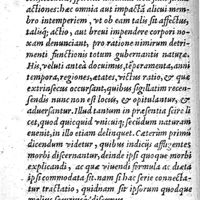 actiones: hæc omnia aut impactâ alicui mem-
bro intemperiem, vt ob eam talis sit affectus,
talisq; actio, aut breui impendere corpori no-
xam denunciant, pro ratione nimirum detri-
menti functionis totum gubernantis naturæ.
His, veluti anteà docuimus, têperamenta, anni
tempora, regiones, ætates, victus ratio, & quæ
extriasecus occursant, quibus sigillatim recen-
sendis nunc non est locus, & opitulantur, &
aduersantur. Illud tantum in præsentia scire li-
cet, quod quicquid vnicuiq; secundùm naturam
euenit, in illo etiam delinquet. Cæterùm primò
dicendum videtur, quibus indicijs affligentes
morbi discernantur, deinde ipsi quoque morbi
explicandi, ac quæ viuendi formula ac diæta
ipsi commodata sit. nam si hac serie connecta-
tur tractatio, quidnam sit ipsorum quodque